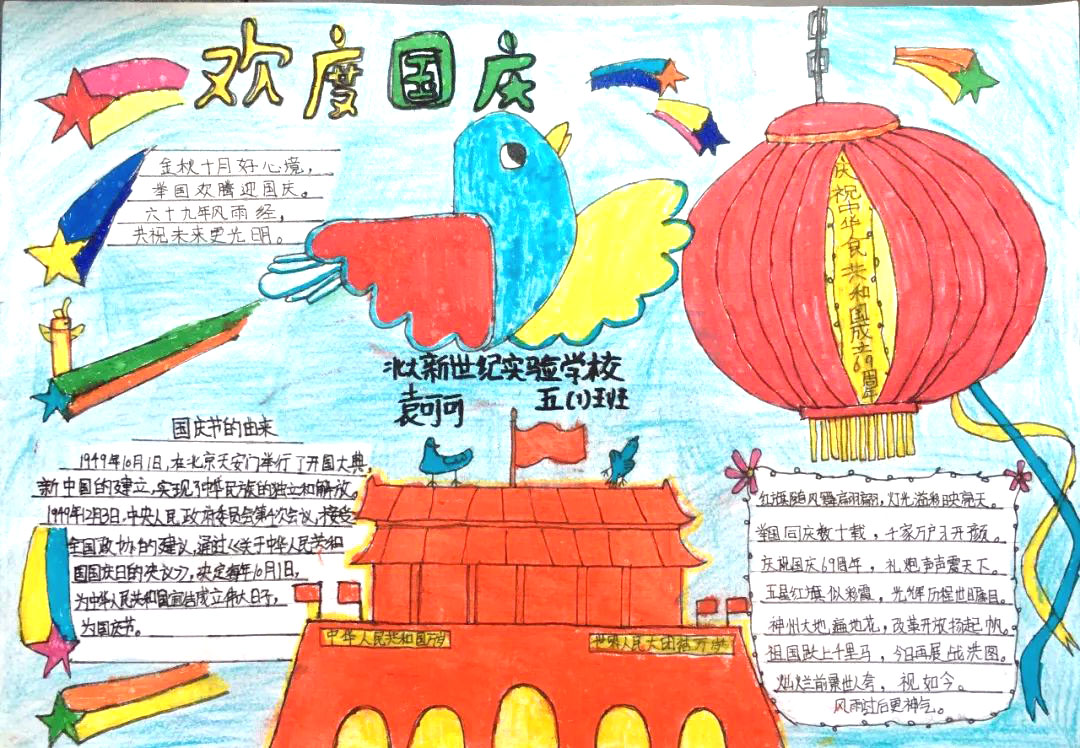 欢度国庆
金秋十月好心境，
举国欢腾迎国庆。
六十九年风雨经，
共祝未来更光明。
庆祝中华人民共和国成立69周年
新世纪实验学校
袁可可 五(1)班
国庆节的由来
1949年10月1日,在北京天安门举行了开国大典,
新中国的建立,实现了中华民族的独立和解放。
1949年12月3日,中央人民政府委员会第4次会议,接受
全国政协的建议,通过《关于中华人民共和
国国庆日的决议》,决定每年10月1日,
为中华人民共和国宣告成立伟大日子,
为国庆节。
中华人民共和国万岁
世界人民大团结万岁
红旗随风飘翩翩,灯光溢彩映亮天。
举国同庆数十载，千家万户习开颜。
庆祝国庆69周年，礼炮声声震天下。
五星红旗似彩霞，光辉历程世瞩目。
神州大地遍地花,改革开放扬起帆。
祖国跃上千里马，今日再展战洪图。
灿烂前景世人夸，视如今。
风雨过后更神气。